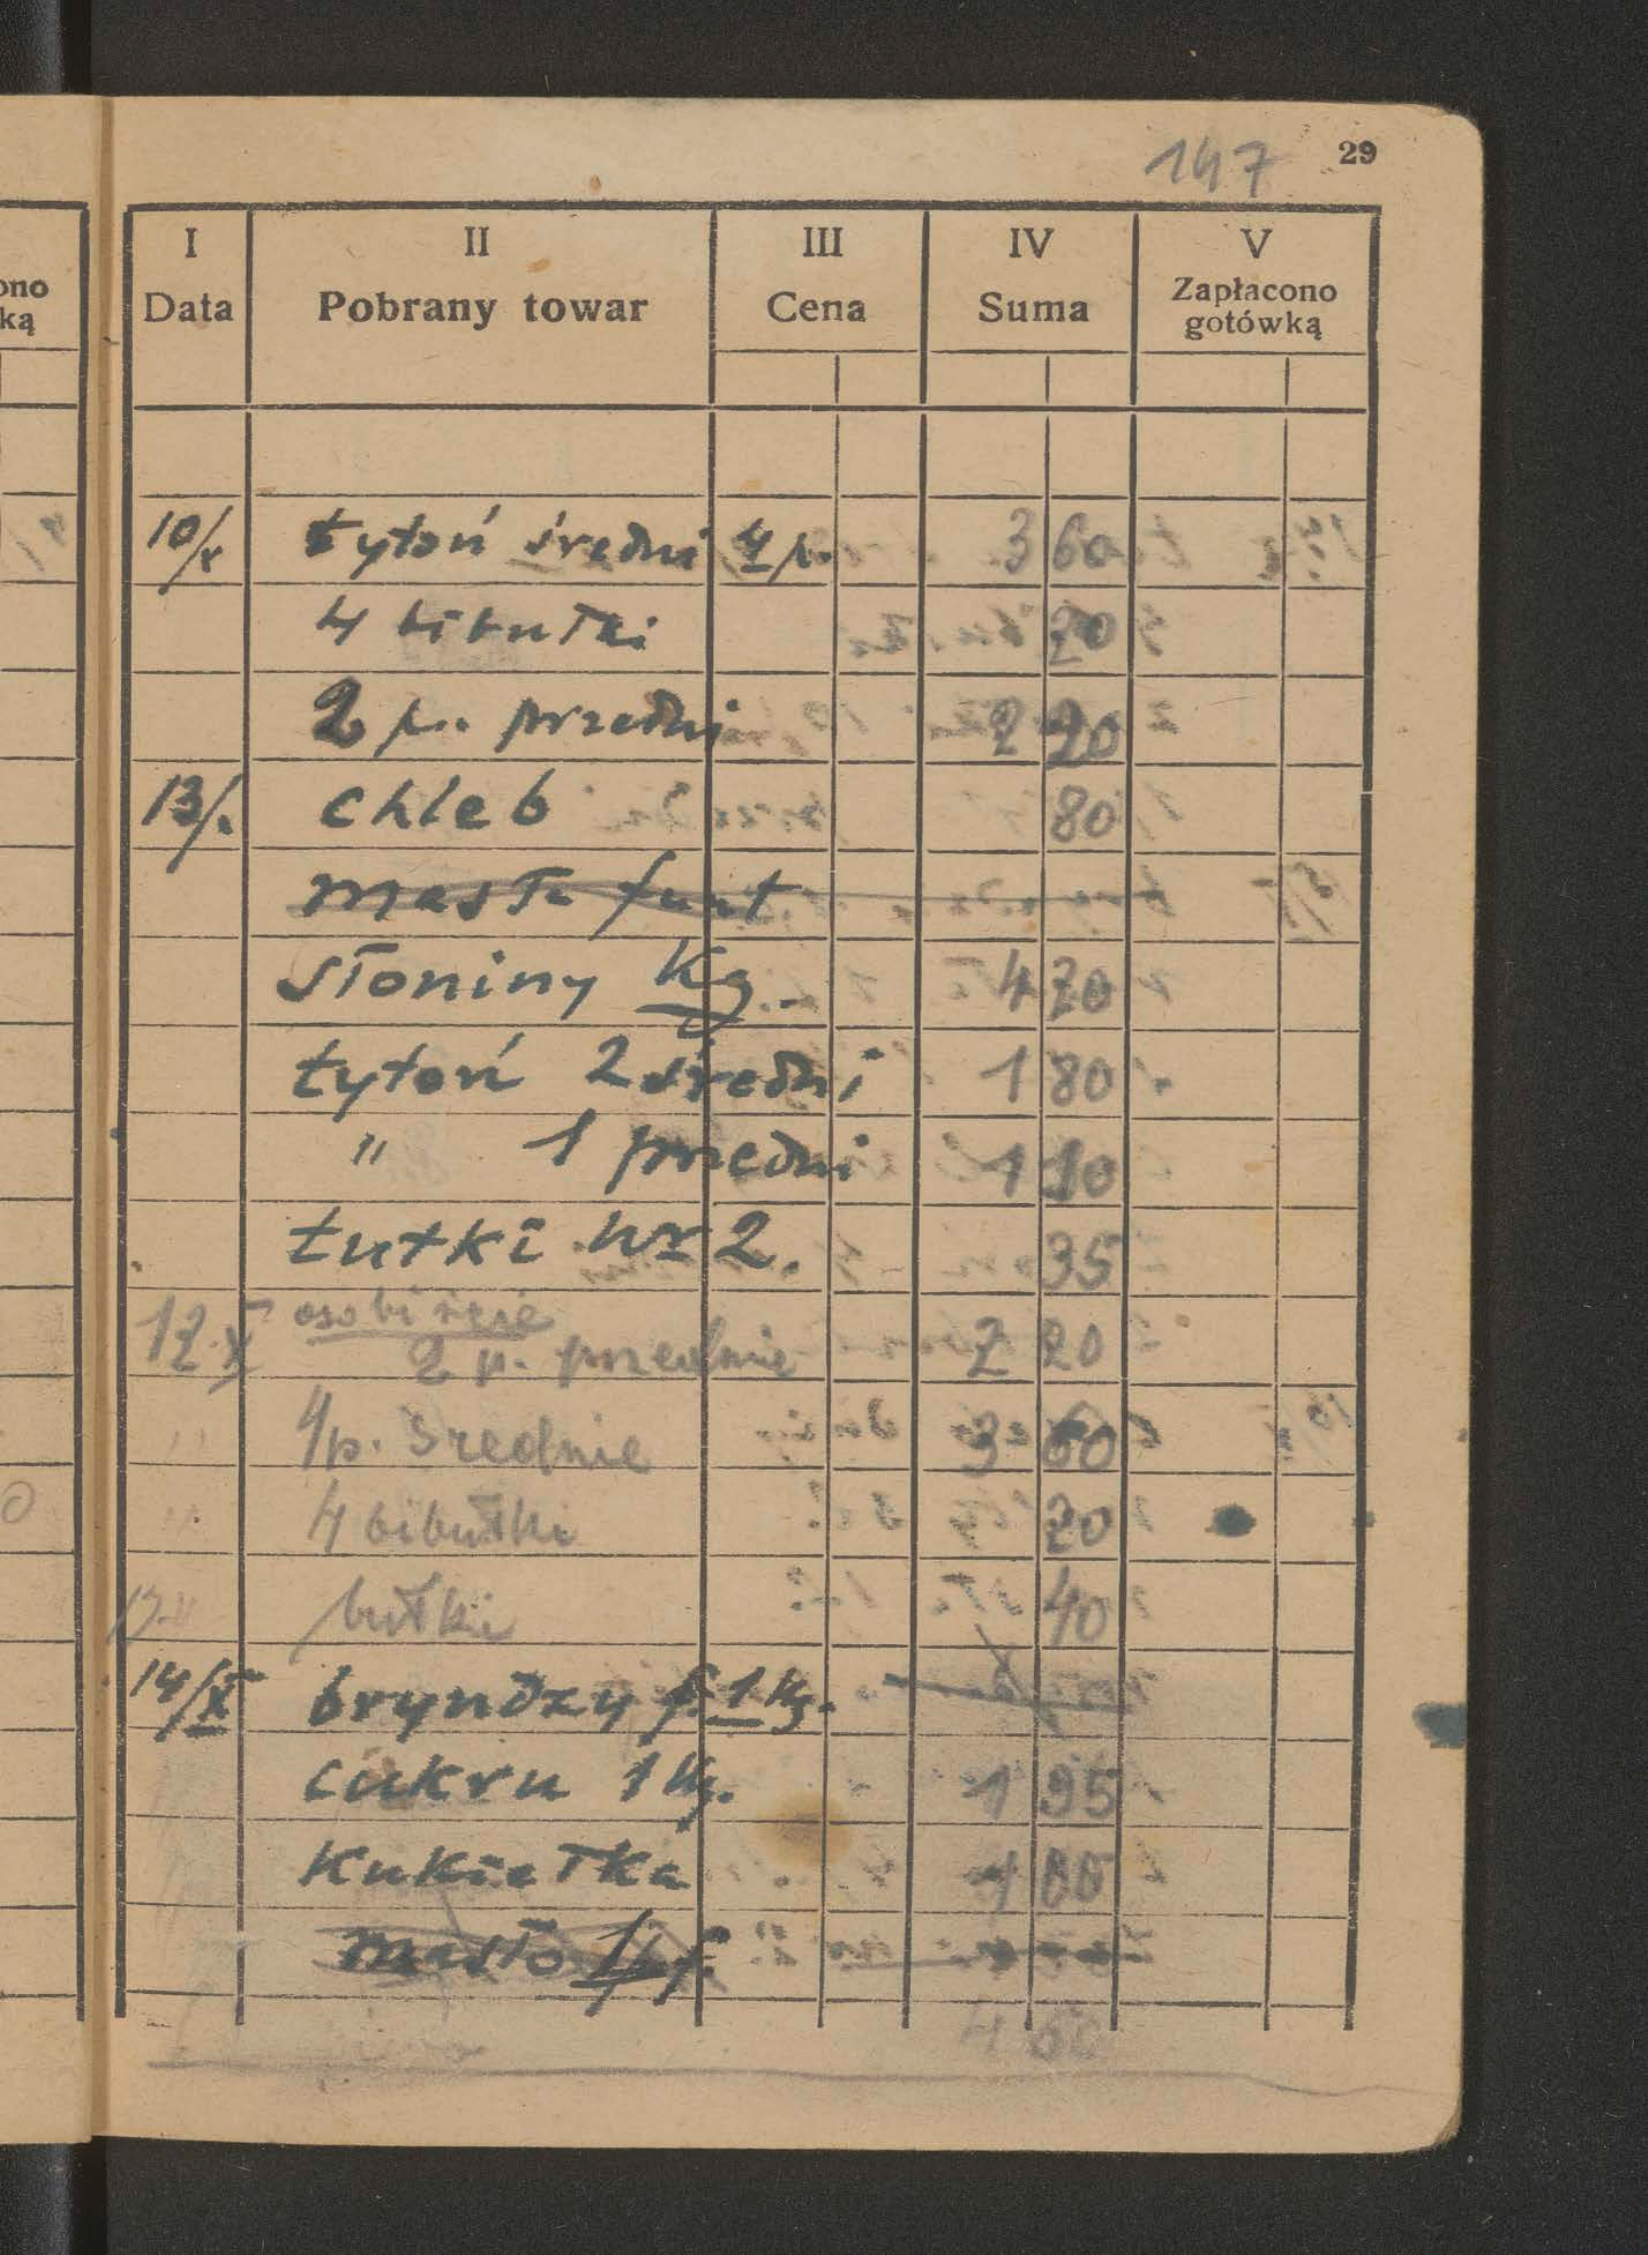 147 29
ono
ką
I II III IV V
Data Pobrany towar Cena Suma Zapłacono gotówką
10/x tytoń średni 4 p. 3 60
4 bibułki 20
2 p. przedni 2 20
13/. chleb 80
masła funt
słoniny Kg. 4 20
tytoń 2 średni 1 80
" 1 przedni 1 10
tutki nr 2. 35
12.X osobiście
2 p. przednie 2 20
" 4 p. średnie 3 60
" 4 bibułki 20
bułki 40
14/X bryndzy 1 kg.
cukru 1 kg. 1 95
Kukiełka 1 00
masło f.
4 60